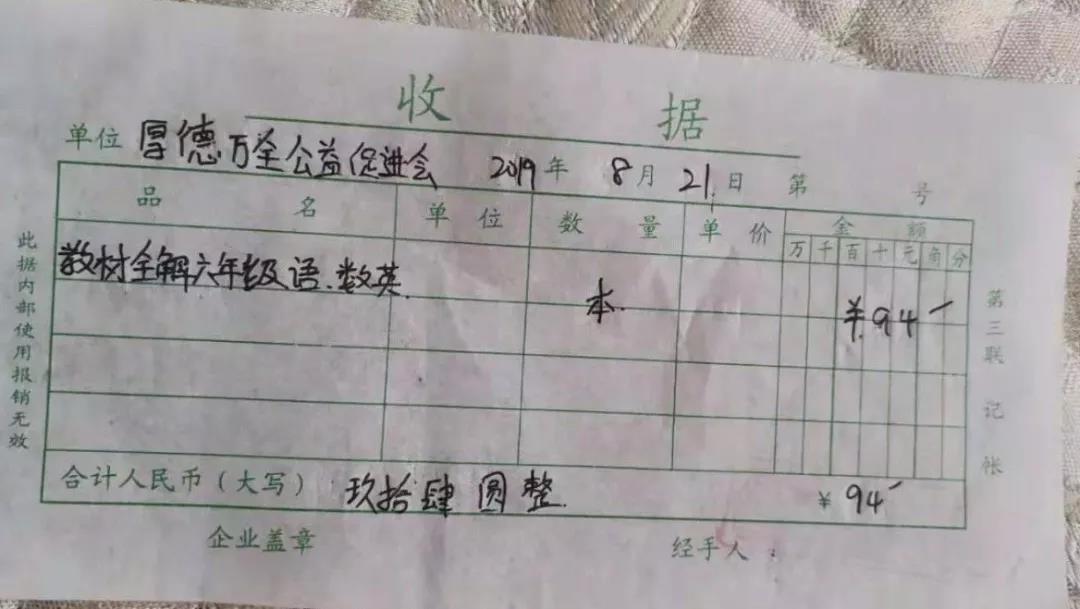 收 据
单位 厚德万全公益促进会 2019年 8月 21日 第 号
品 名 单 位 数 量 单 价 金 额
万 千 百 十 元 角 分
教材全解六年级语.数英. 本. ¥.94
合计人民币（大写） 玖拾肆圆整. ¥ 94
企业盖章 经手人：
此据内部使用报销无效
第三联 记帐